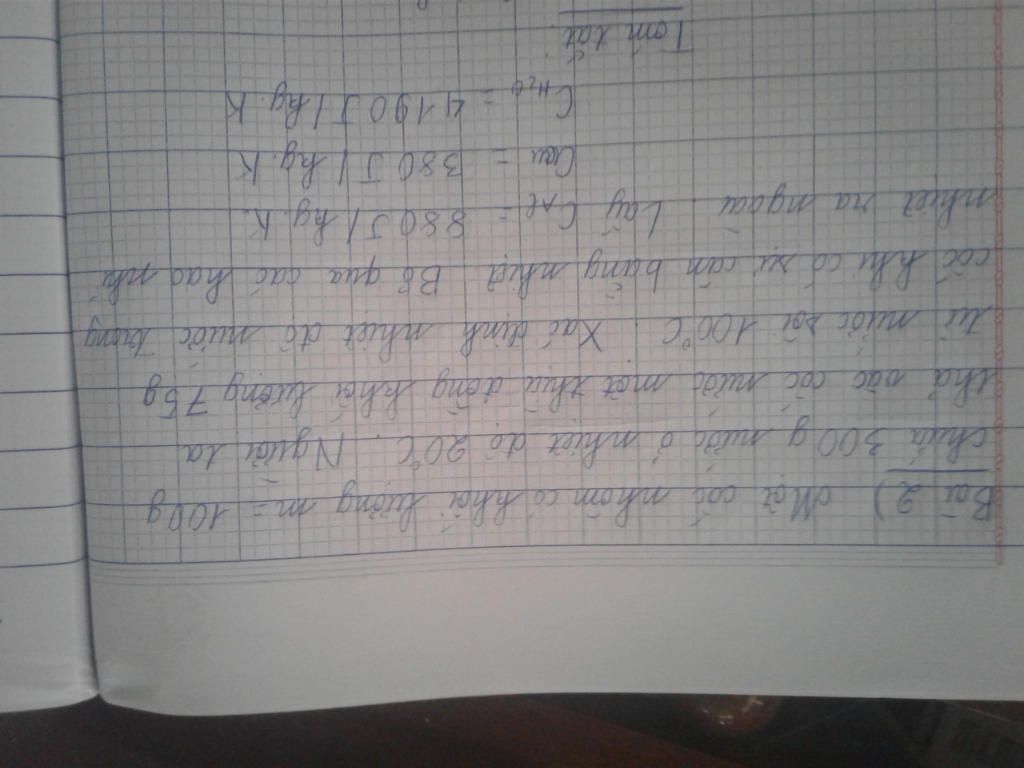 Bài 2) Một cốc nhôm có khối lượng m = 100g
chứa 300 g nước ở nhiệt độ 20°C. Người ta
thả vào cốc nước một thìa đồng khối lượng 75g
từ nước sôi 100°C. Xác định nhiệt độ nước trong
cốc khi có sự cân bằng nhiệt. Bỏ qua các hao phí
nhiệt ra ngoài. Lấy CAl = 880 J/kg.K.
Ccu = 380 J/kg.K
CH₂O = 4190 J/kg.K
Tóm tắt